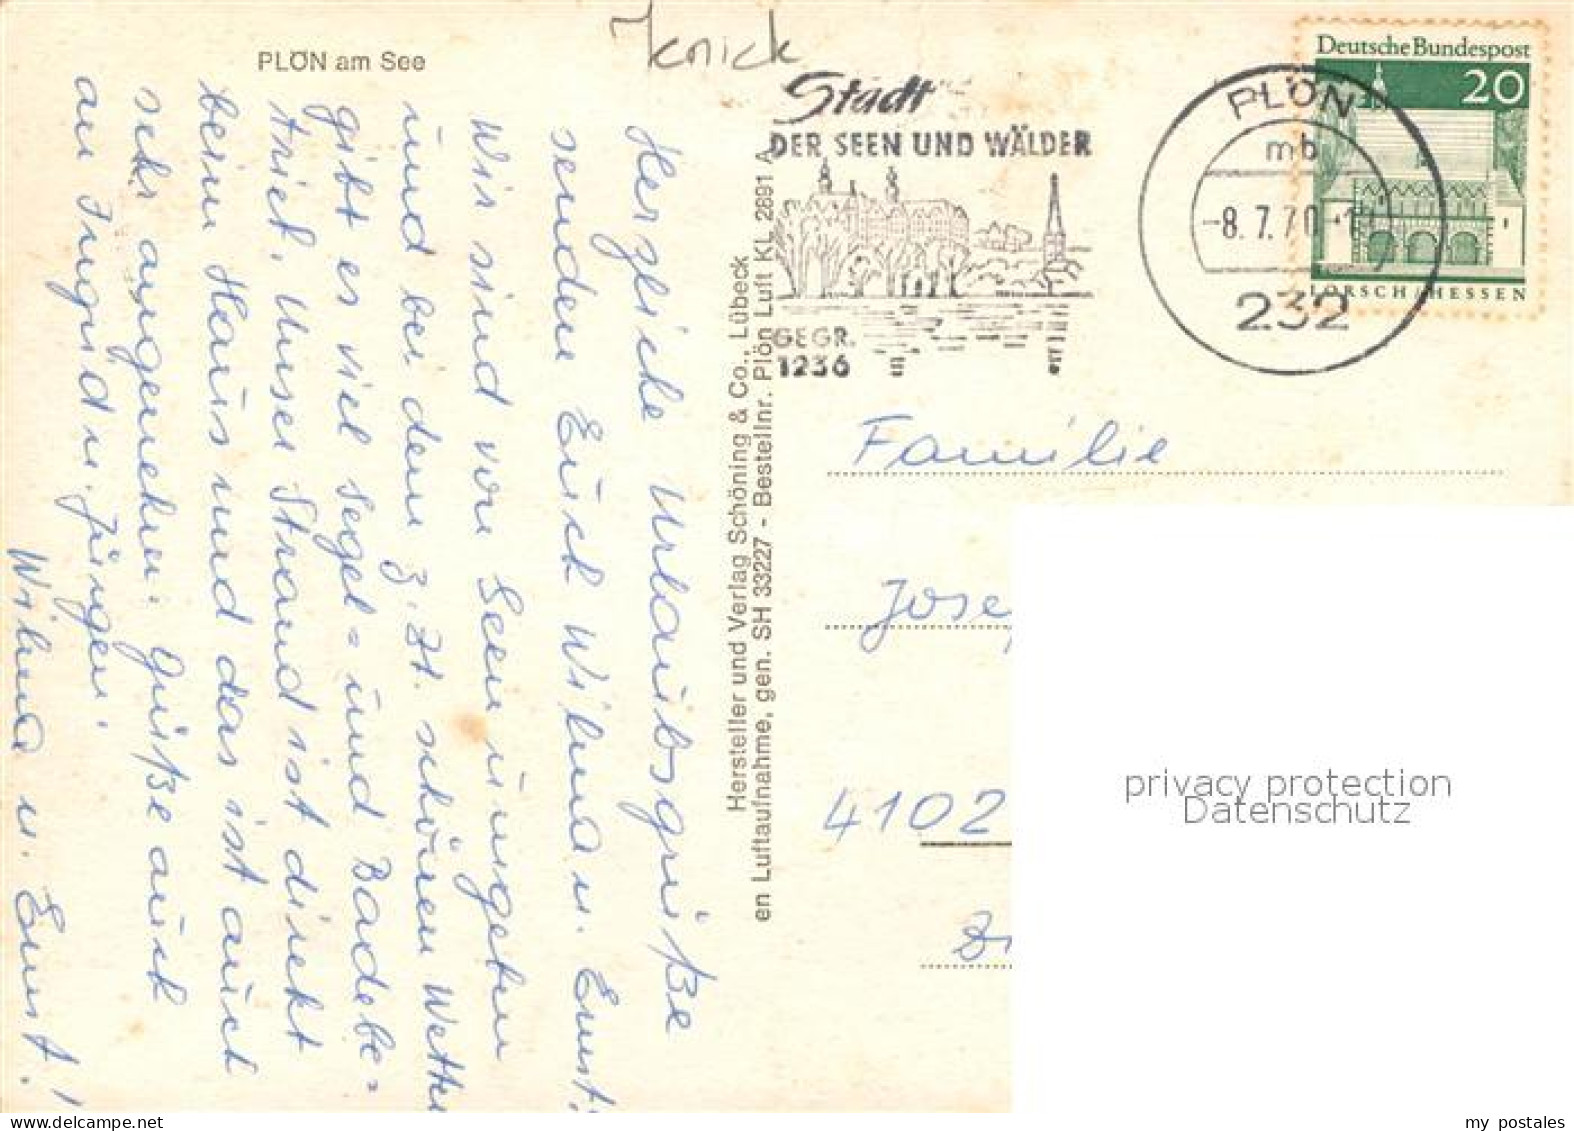 Knick
PLÖN am See
Herzliche Urlaubsgrüße
senden Euch Wilma u. Ernst!
Wir sind von Seen umgeben
und bei dem z. Zt. schönen Wetter
gibt es viel Segel= und Badebe=
trieb. Unser Strand ist direkt
beim Haus und das ist auch
sehr angenehm. Grüße auch
an Ingrid u. Jürgen.
Wilma u. Ernst!
Hersteller und Verlag Schöning & Co., Lübeck
en Luftaufnahme, gen. SH 33227 - Bestellnr. Plön Luft KL 2891 A
Stadt
DER SEEN UND WÄLDER
GEGR.
1236
PLÖN
mb
-8.7.70-1
232
Deutsche Bundespost
20
LORSCH/HESSEN
Familie
Jose
4102
privacy protection
Datenschutz
my postales